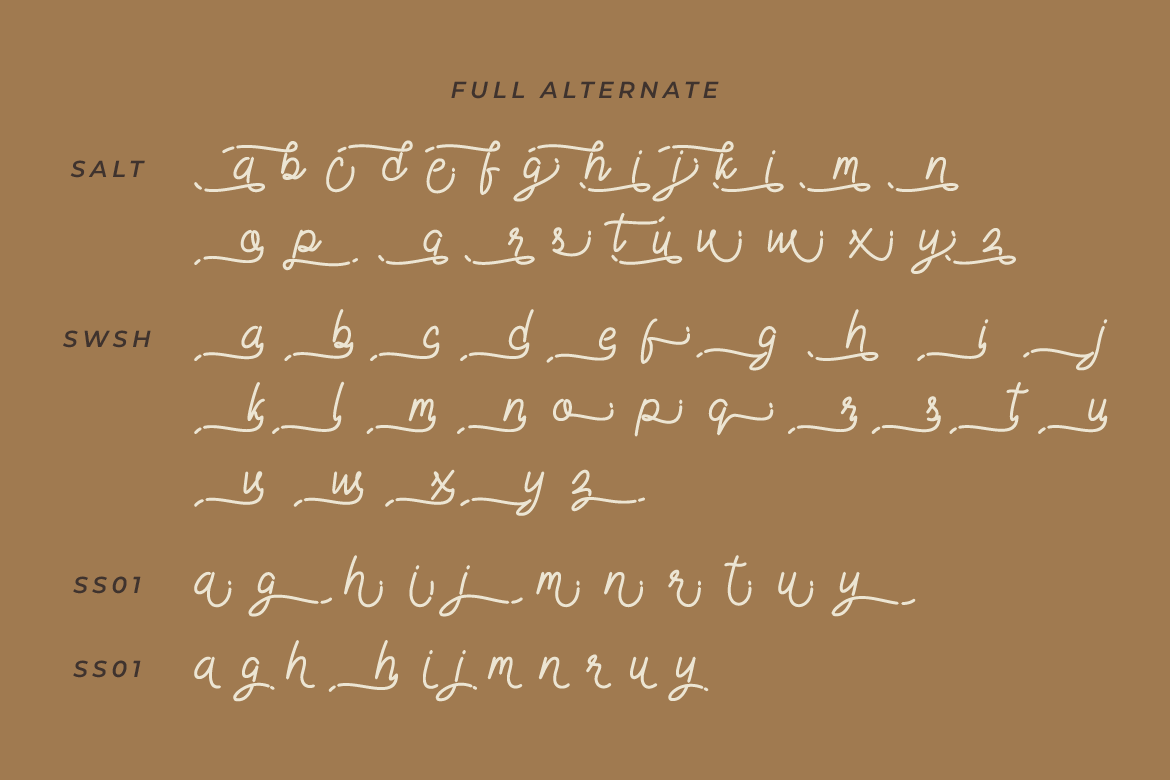 FULL ALTERNATE
SALT a b c d e f g h i j k i m n
o p q r s t u v w x y z
SWSH a b c d e f g h i j
k l m n o p q r s t u
v w x y z
SS01 a g h i j m n r t u y
SS01 a g h h i j m n r u y